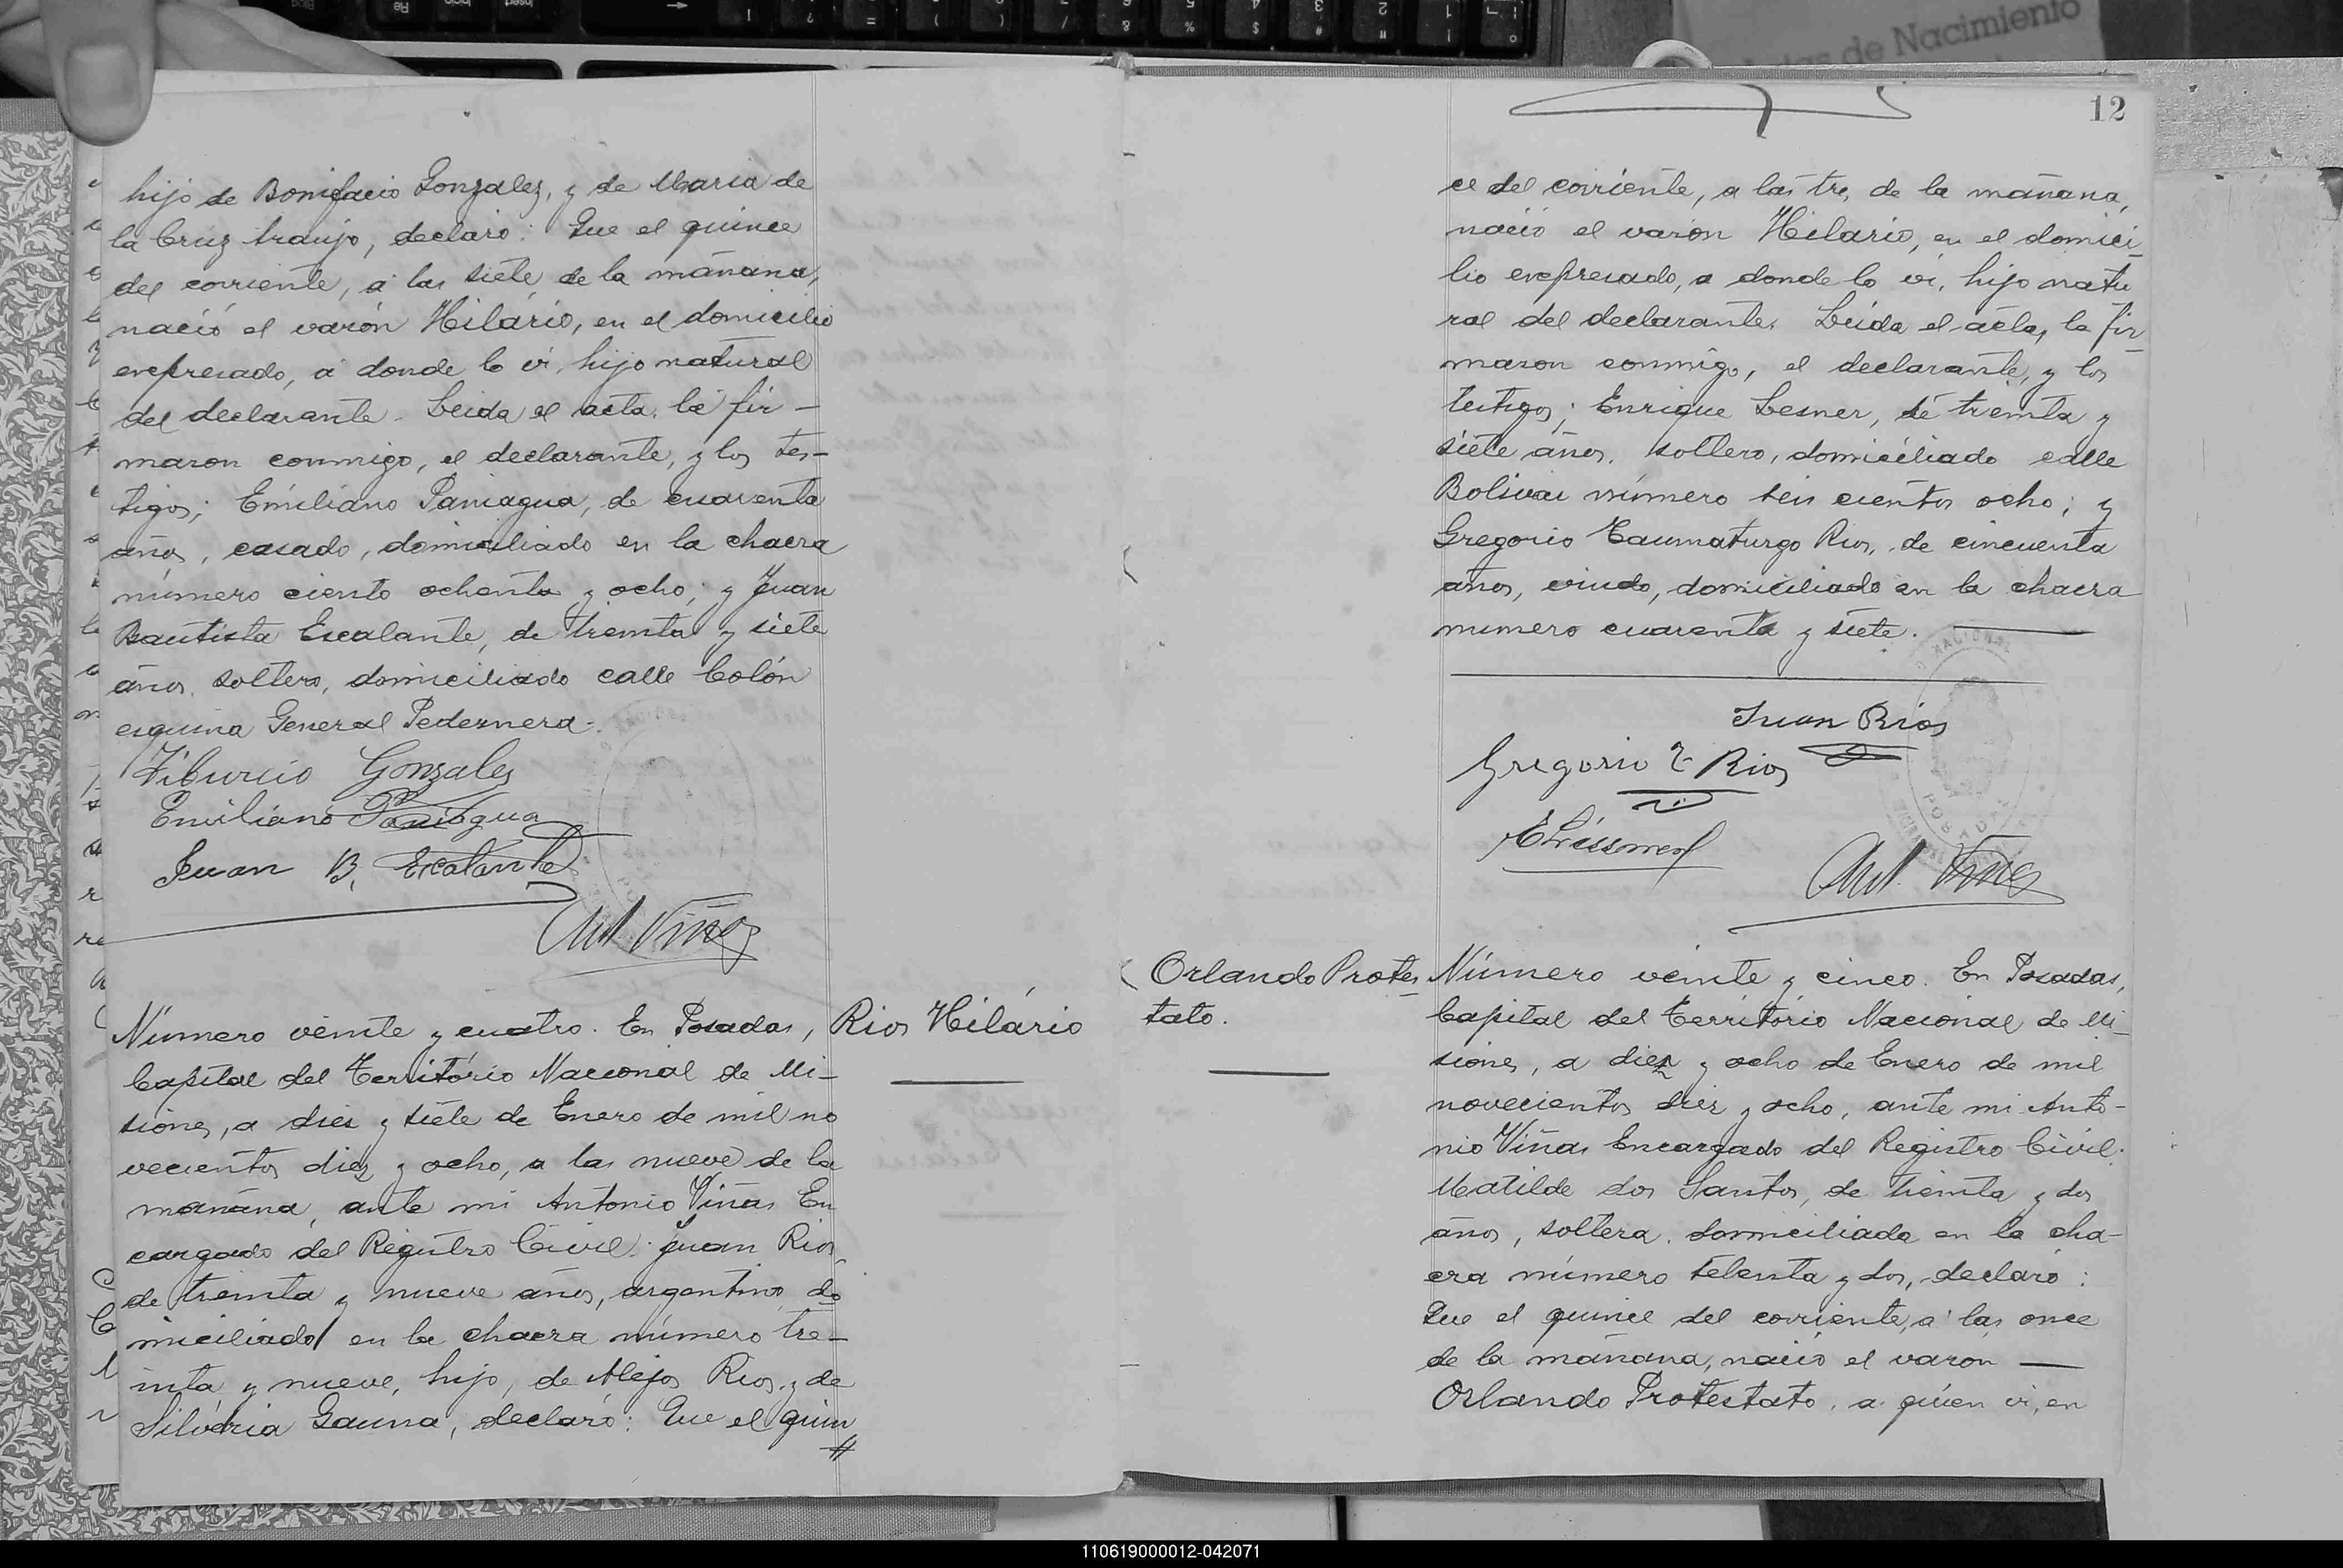 hijo de Bonifacio Gonzalez, y de Maria de
la Cruz Araujo, declaró: Que el quince
del corriente, á las siete de la mañana,
nació el varón Hilário, en el domicilio
expresado, á donde lo vi, hijo natural
del declarante. Leida el acta, la fir-
maron conmigo, el declarante, y los tes-
tigos; Emiliano Paniagua, de cuarenta
años, casado, domiciliado en la chacra
número ciento ochenta y ocho; y Juan
Bautista Escalante, de treinta y siete
años, soltero, domiciliado calle Colón
esquina General Pedernera.
Tiburcio Gonzales
Emiliano Paniagua
Juan B. Escalante
Ant Viñas
Número veinte y cuatro. En Posadas,
Rios Hilário
Capital del Território Nacional de Mi-
siones, a diez y siete de Enero de mil no
vecientos diez y ocho, a las nueve de la
mañana, ante mi Antonio Viñas En
cargado del Registro Civil: Juan Rios
de treinta y nueve años, argentino, do
miciliado en la chacra número tre-
inta y nueve, hijo, de Alejos Rios, y de
Silvéria Gauna, declaró: Que el quin
#
12
ce del corriente, a las tres de la mañana,
nació el varón Hilario, en el domici-
lio expresado, a donde lo vi, hijo natu
ral del declarante. Leida el acta, la fir-
maron conmigo, el declarante, y los
testigos; Enrique Lesner, de treinta y
siete años, soltero, domiciliado calle
Bolivar número seis cientos ocho; y
Gregorio Taumaturgo Rios, de cincuenta
años, viudo, domiciliado en la chacra
numero cuarenta y siete.
Juan Rios
Gregorio T Rios
Ant. Viñas
Orlando Protes-
tato.
Número veinte y cinco. En Posadas,
Capital del Território Nacional de Mi-
siones, a diez y ocho de Enero de mil
novecientos diez y ocho, ante mi Anto-
nio Viñas Encargado del Registro Civil:
Matilde dos Santos, de treinta y dos
años, soltera, domiciliada en la cha-
cra número setenta y dos, declaró:
Que el quince del corriente, a las once
de la mañana, nació el varon
Orlando Protestato, a quien vi, en
de Nacimiento
110619000012-042071